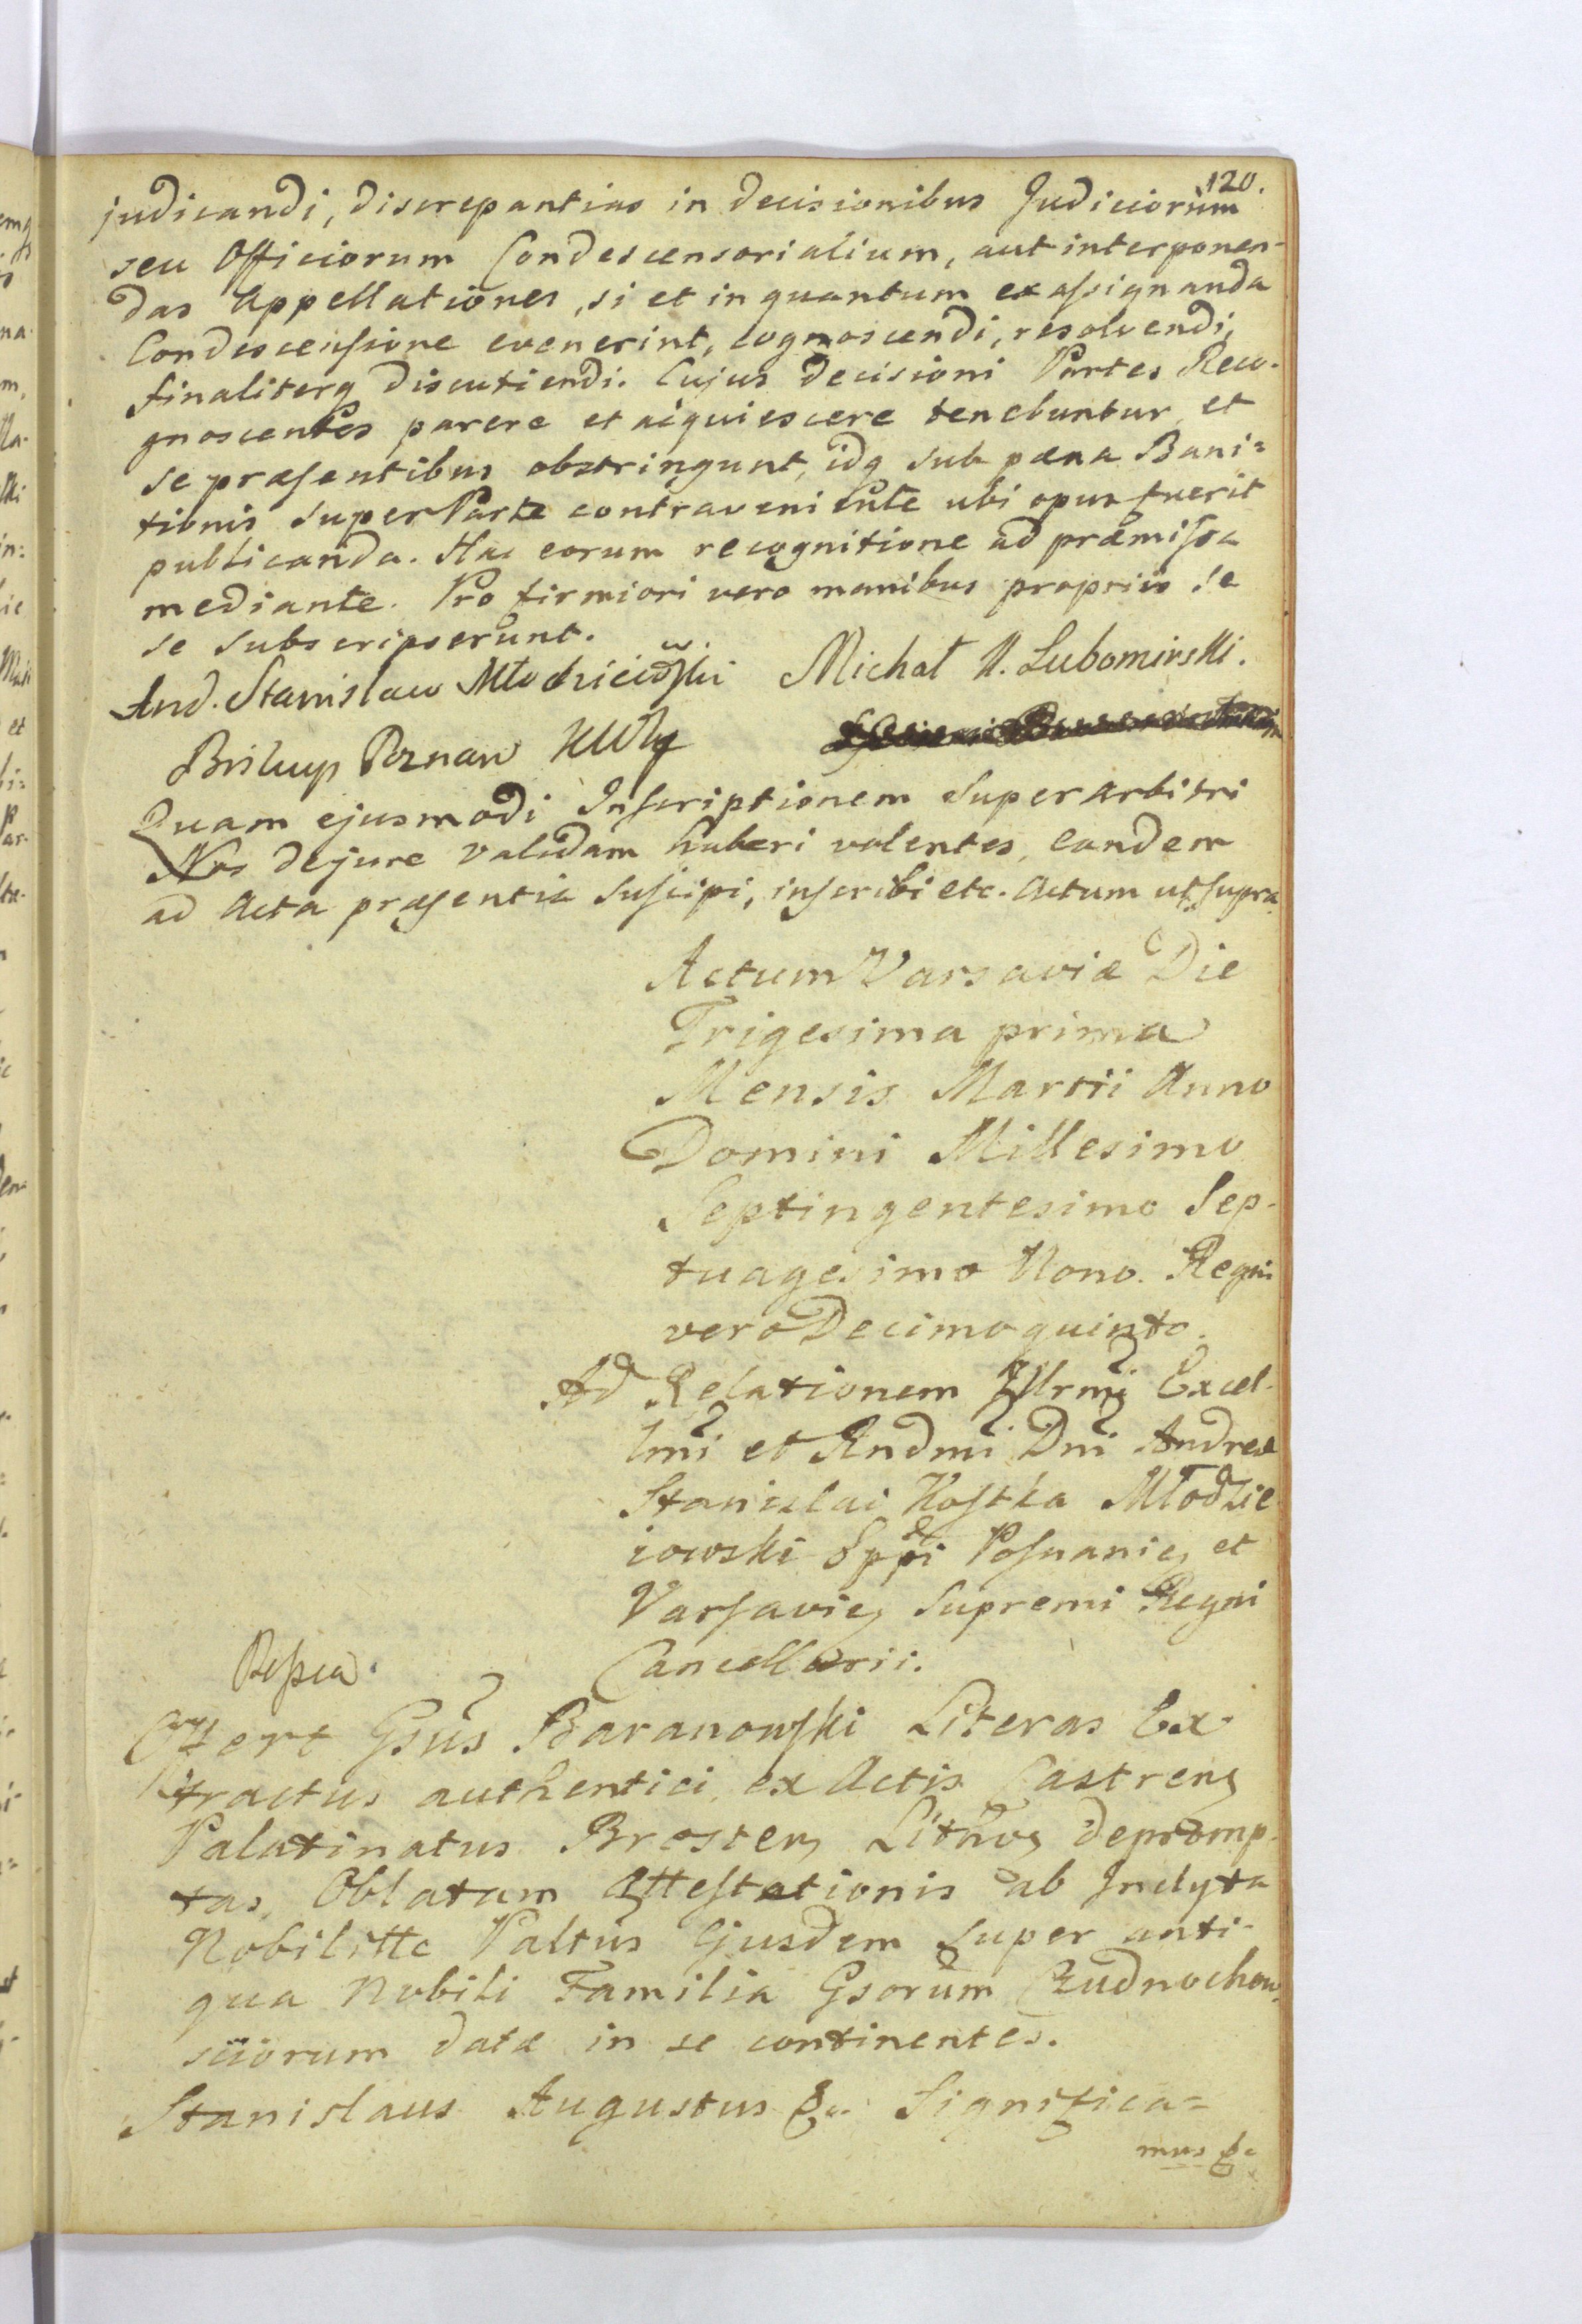 120.
judicandi, discrepantias in decisionibus Judiciorum
seu Officiorum Condescensorialium, aut interponen-
das Appellationes, si et in quantum ex assignanda
Condescensione evenerint, cognoscendi, resolvendi,
finaliterq discutiendi. Cujus decisioni Partes Reco-
gnoscentes parere et acquiescere tenebuntur et
se præsentibus obstringunt, idq sub pæna Bani=
tionis super Parte contraveniente ubi opus fuerit
publicanda. Hac eorum recognitione ad præmissa
mediante. Pro firmiori vero manibus propriis se
se subscripserunt.
And. Stanislaw Młodzieiowski Michał X. Lubomirski.
Biskup Poznan KWK
Quam ejusmodi Inscriptionem Superarbitri
Nos dejure validam haberi volentes, eandem
ad Acta præsentia suscipi, inscribi etc. Actum ut supra
Actum Varsaviæ Die
Trigesima prima
Mensis Martii Anno
Domini Millesimo
Septingentesimo Sep-
tuagesimo Nono. Regni
vero Decimo quinto.
Ad Relationem Illrmi Excel-
lmi et Rndmi Dni Andreæ
Stanislai Kostka Młodzie
iowski Eppi Posnanię et
Varsavię, Supremi Regni
Cancellarii.
Offert Gsus Baranowski Literas Ex-
tractus authentici ex Actis Castren
Palatinatus Bresten Lithvo depromp-
tas, Oblatam Attestationis ab Inclyta
Nobilitte Paltus Ejusdem super anti-
qua Nobili Familia Gsorum Czudnochow
sciorum datæ in se continentes.
Stanislaus Augustus &c. Significa=
mus &c